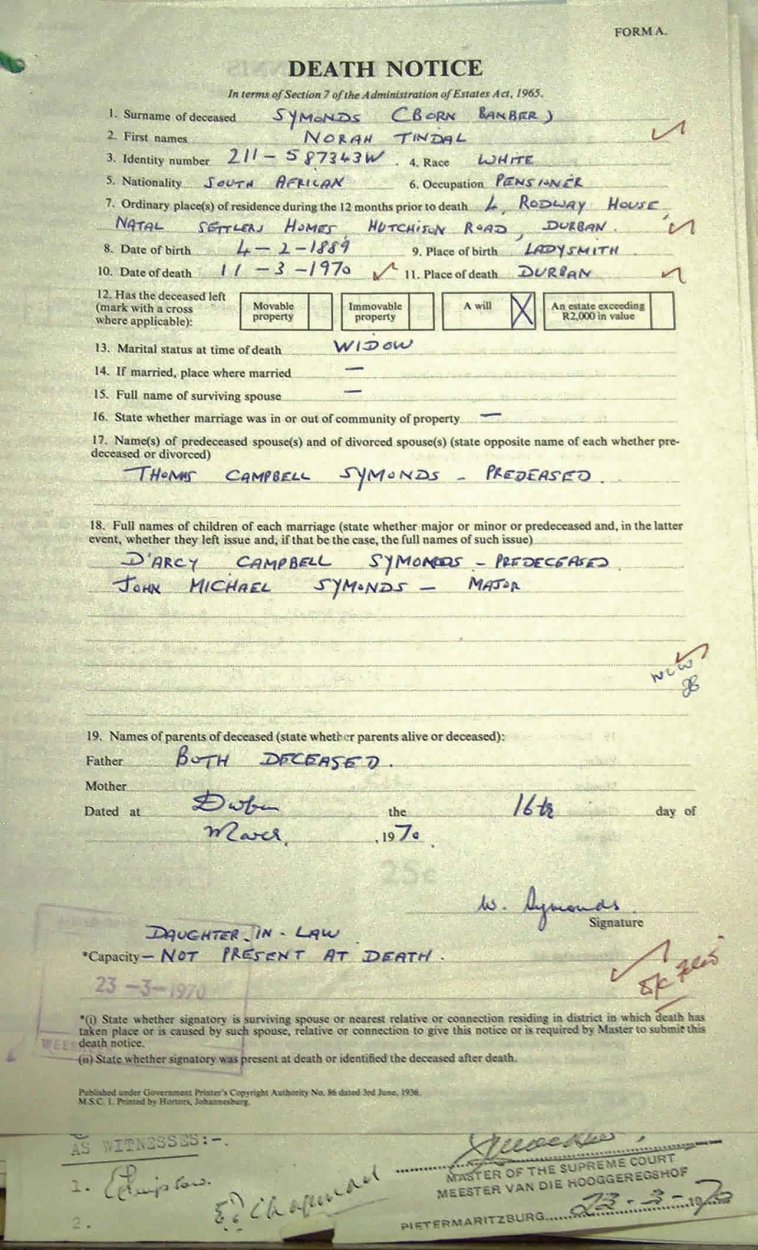 FORM A.
DEATH NOTICE
In terms of Section 7 of the Administration of Estates Act, 1965.
1. Surname of deceased SYMONDS (BORN BAMBER)
2. First names NORAH TINDAL
3. Identity number 211-587343W 4. Race WHITE
5. Nationality SOUTH AFRICAN 6. Occupation PENSIONER
7. Ordinary place(s) of residence during the 12 months prior to death 4, RODWAY HOUSE,
NATAL SETTLERS HOMES, HUTCHISON ROAD, DURBAN.
8. Date of birth 4-2-1889 9. Place of birth LADYSMITH
10. Date of death 11-3-1970 11. Place of death DURBAN
12. Has the deceased left
(mark with a cross
where applicable):
Movable
property
Immovable
property
A will X
An estate exceeding
R2,000 in value
13. Marital status at time of death WIDOW
14. If married, place where married —
15. Full name of surviving spouse —
16. State whether marriage was in or out of community of property —
17. Name(s) of predeceased spouse(s) and of divorced spouse(s) (state opposite name of each whether pre-
deceased or divorced)
THOMAS CAMPBELL SYMONDS - PREDEASED.
18. Full names of children of each marriage (state whether major or minor or predeceased and, in the latter
event, whether they left issue and, if that be the case, the full names of such issue)
D'ARCY CAMPBELL SYMONDS - PREDECEASED
JOHN MICHAEL SYMONDS - MAJOR
19. Names of parents of deceased (state whether parents alive or deceased):
Father BOTH DECEASED.
Mother
Dated at Durban the 16th day of
March, 1970.
W. Symonds
Signature
DAUGHTER-IN-LAW
*Capacity - NOT PRESENT AT DEATH.
23-3-1970
*(i) State whether signatory is surviving spouse or nearest relative or connection residing in district in which death has
taken place or is caused by such spouse, relative or connection to give this notice or is required by Master to submit this
death notice.
(ii) State whether signatory was present at death or identified the deceased after death.
Published under Government Printer's Copyright Authority No. 86 dated 3rd June, 1936.
M.S.C. 1. Printed by Hortors, Johannesburg.
AS WITNESSES:-.
1.
2. Chapman
MASTER OF THE SUPREME COURT
MEESTER VAN DIE HOOGGEREGSHOF
PIETERMARITZBURG 23-3-1970